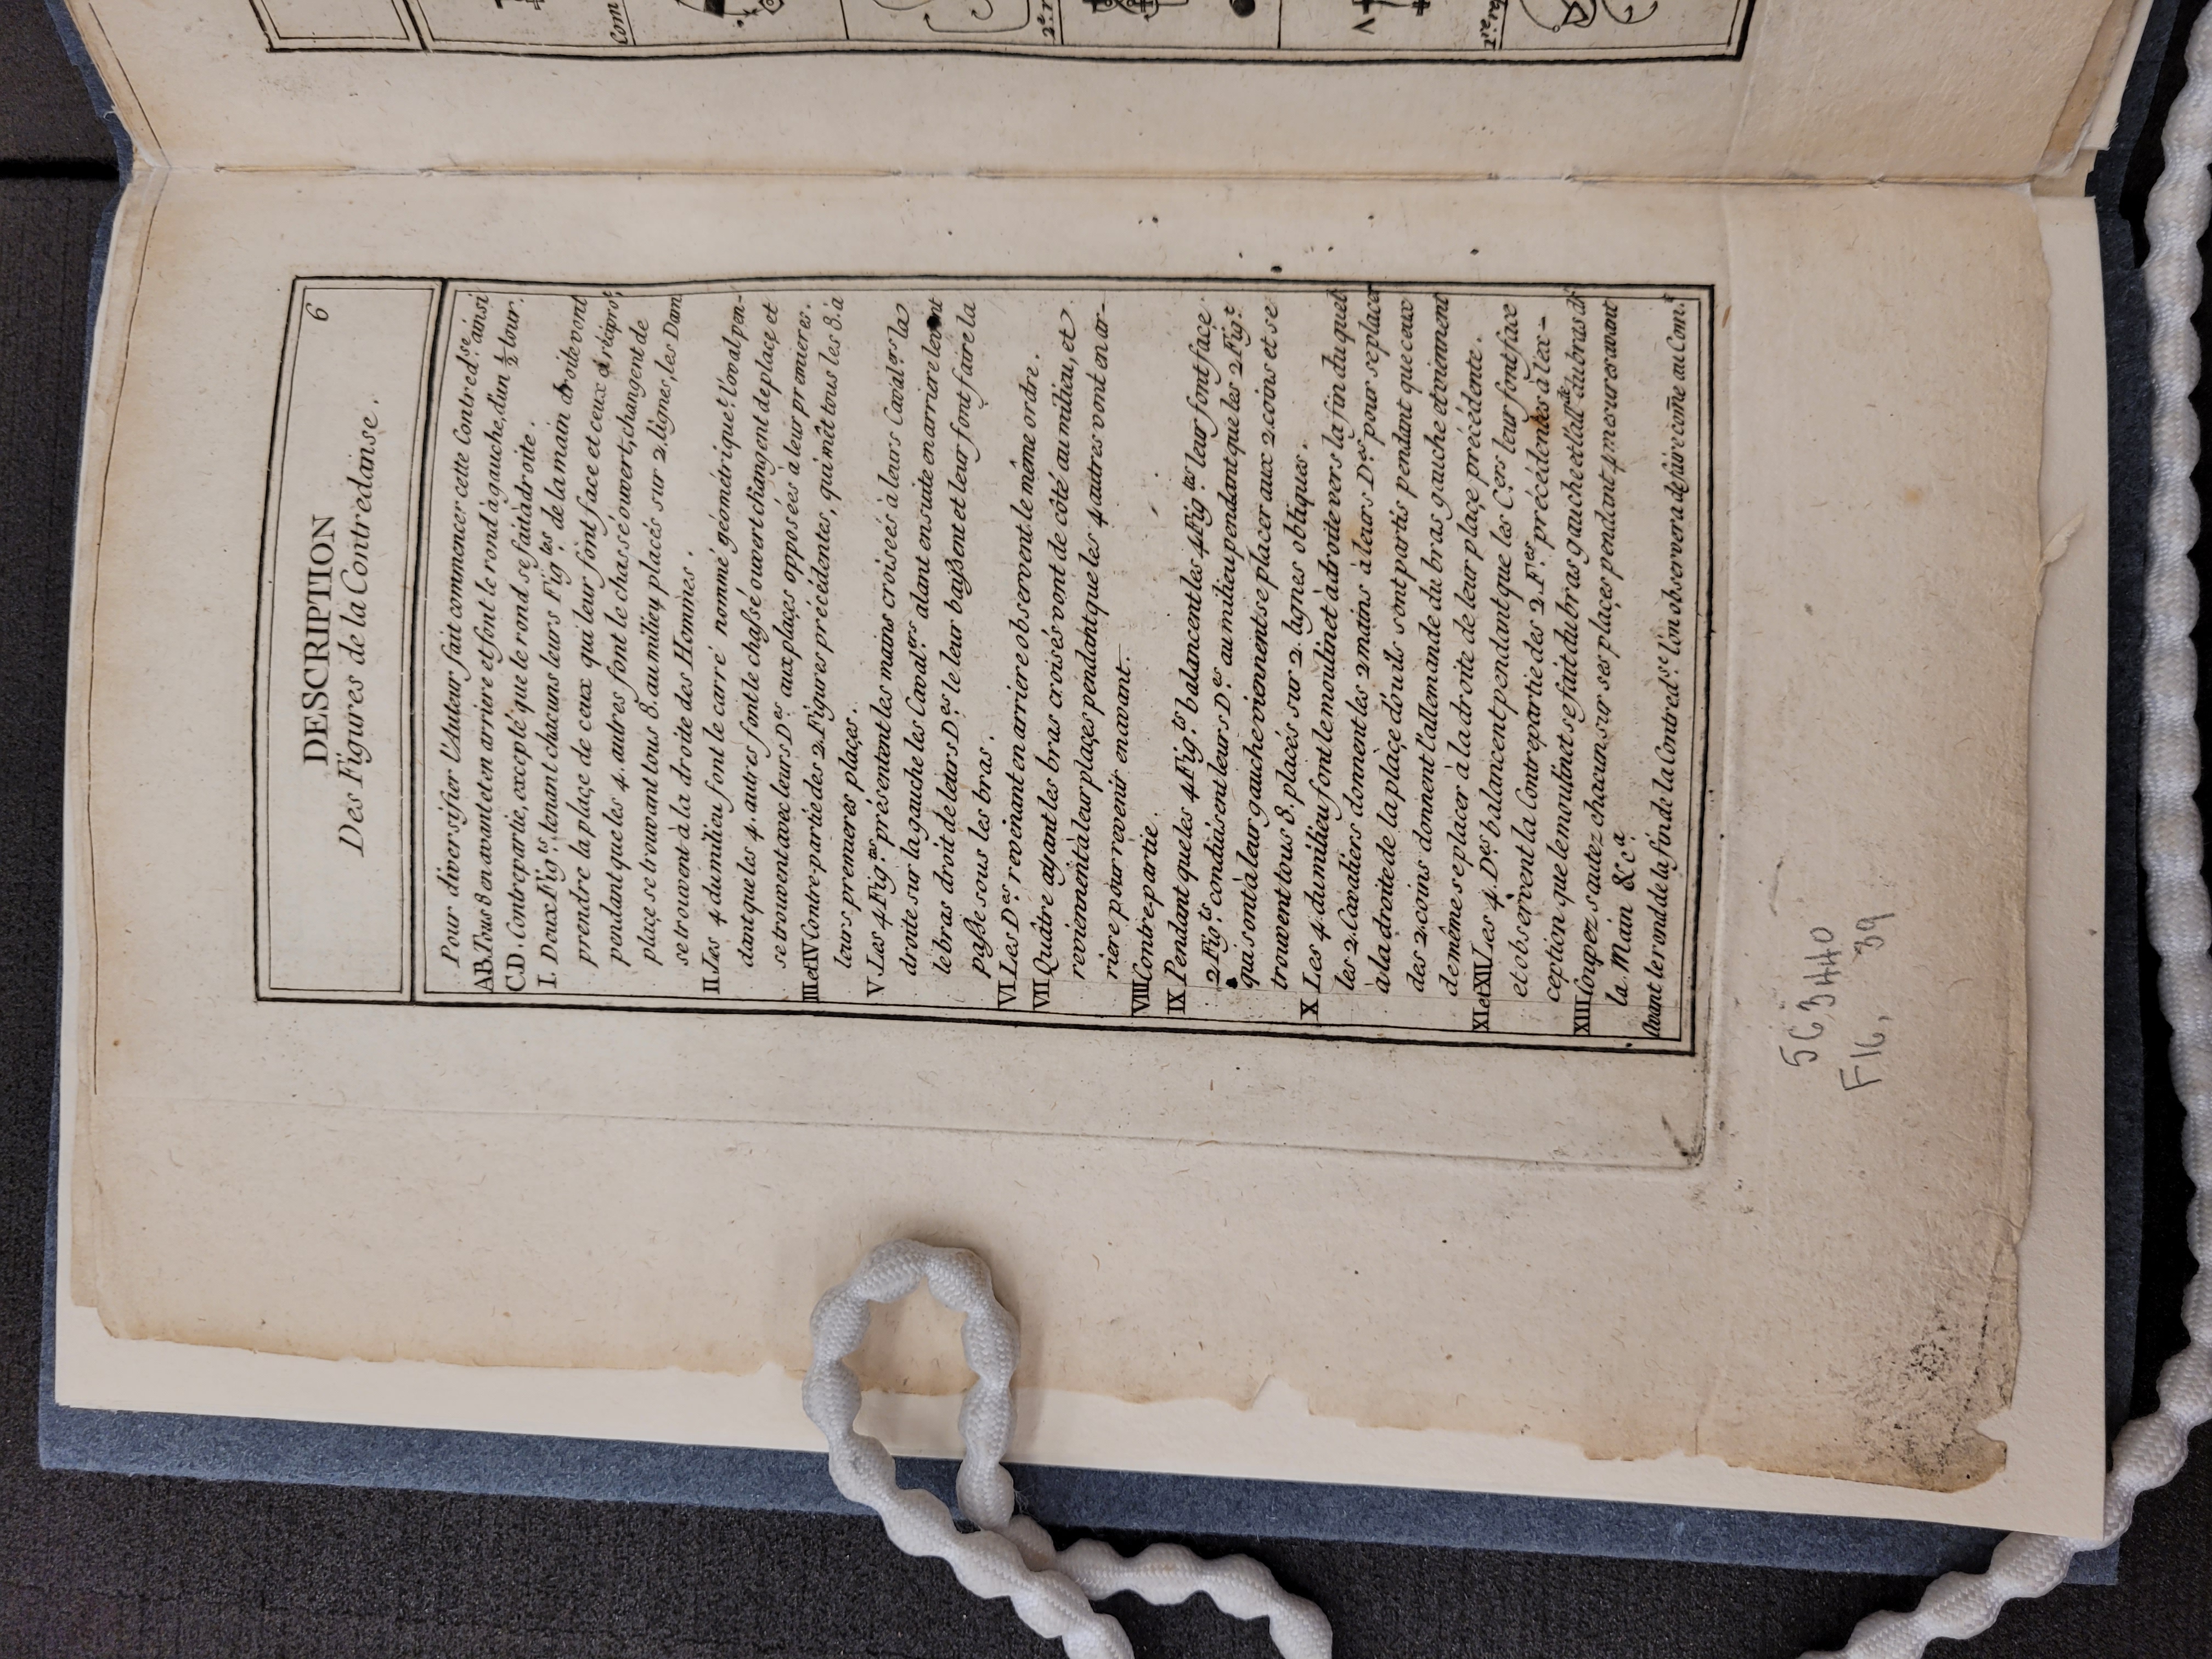 6
DESCRIPTION
Des Figures de la Contredanse.
Pour diversifier l'Auteur fait commencer cette Contred.se ainsi
AB. Tous 8 en avant et en arriere et font le rond à gauche, d'un ½ tour.
C.D. Contrepartie, excepté que le rond se fait à droite.
I. Deux Fig.ts tenant chacuns leurs Fig.tes de la main droite vont
prendre la plaçe de ceux qui leur font face et ceux ci réciproq.t
pendant que les 4. autres font le chassé ouvert, changent de
plaçe se trouvant tous 8. au milieu placés sur 2. lignes, les Dam
se trouvent à la droite des Hommes.
II. Les 4 du milieu font le carré nommé géométriquet. l'oval pen-
dant que les 4. autres font le chaſsé ouvert changent de plaçe et
se trouvent avec leurs D.es aux plaçes opposées à leur premieres.
III et IV Contre-partie des 2. Figures précédentes, qui mèt tous les 8. à
leurs premieres plaçes.
V. Les 4 Fig.tes présentent les mains croisées à leurs Caval.ers la
droite sur la gauche les Caval.ers alant ensuite en arriere levant
le bras droit de leurs D.es le leur baiſsent et leur font faire la
paſse sous les bras.
VI. Les D.es revenant en arriere observent le même ordre.
VII Quâtre ayant les bras croisés vont de côté au milieu, et
reviennent à leur plaçes pendant que les 4 autres vont en ar-
riere pour revenir en avant.
VIII Contre partie.
IX Pendant que les 4 Fig.ts balancent les 4 Fig.tes leur font face
2 Fig.ts conduisent leurs D.es au milieu pendant que les 2 Fig.t
qui sont à leur gauche viennent se placer aux 2. coins et se
trouvent tous 8. placés sur 2. lignes obliques.
X Les 4 du milieu font le moulinet à droite vers la fin du quel
les 2. Cavaliers donnent les 2 mains à leurs D.es pour se placer
à la droite de la plaçe d'ou ils sont partis pendant que ceux
des 2. coins donnent l'allemande du bras gauche et viennent
de même se placer à la droite de leur plaçe précédente.
XI et XII Les 4. D.es balancent pendant que les C.ers leur font face
et observent la Contrepartie des 2. F.es précédentes à l'ex-
ception que le moulinet se fait du bras gauche et l'all.de du bras dr
XIII Coupez sautez chacun sur ses plaçes pendant 4 mesures avant
la Main &c.a
Avant le rond de la fin de la Contred.se l'on observera de faire coṁe au Com.t
5C3440
F16, 39
Com
2e. r
1re. re